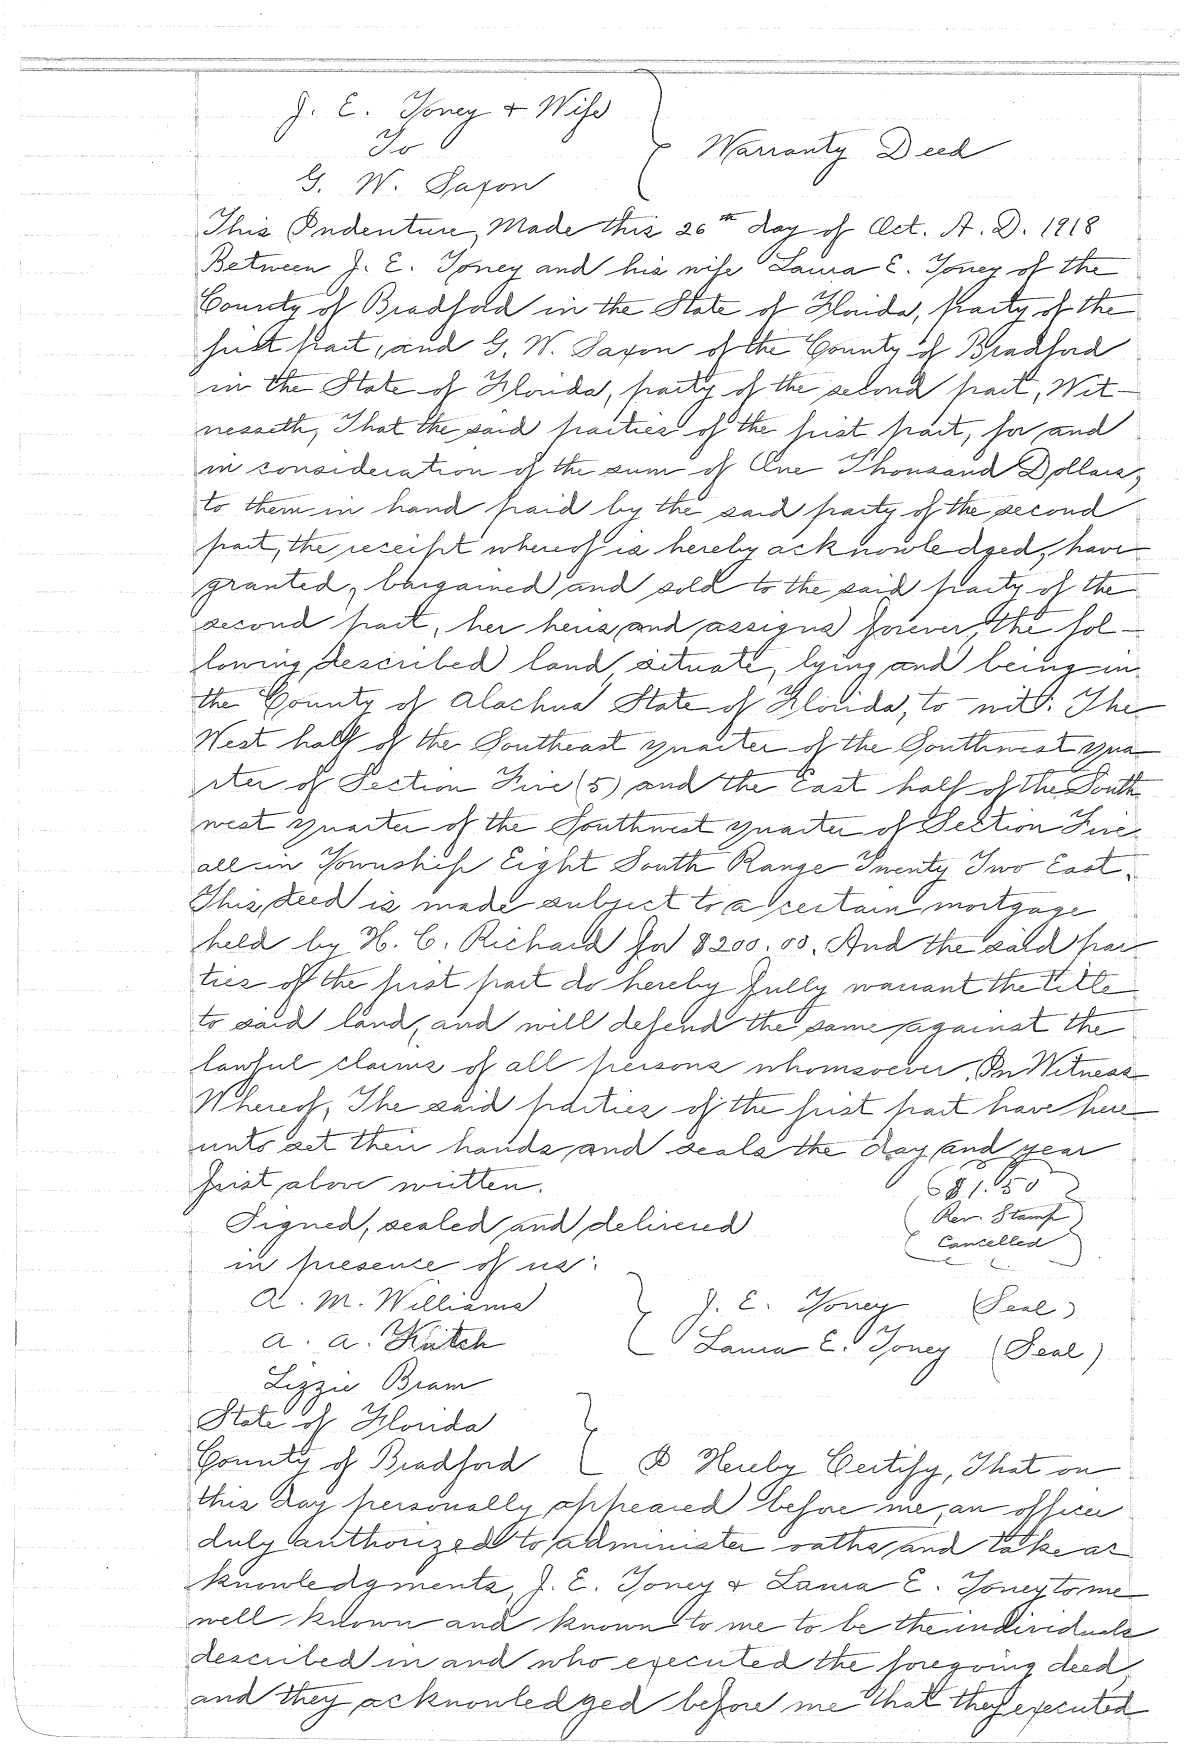 J. E. Toney + Wife
To
Warranty Deed
G. W. Saxon
This Indenture, Made this 26th day of Oct. A. D. 1918
Between J. E. Toney and his wife Laura E. Toney of the
County of Bradford in the State of Florida, party of the
first part, and G. W. Saxon of the County of Bradford
in the State of Florida, party of the second part, Wit-
nesseth, That the said parties of the first part, for and
in consideration of the sum of One Thousand Dollars,
to them in hand paid by the said party of the second
part, the receipt whereof is hereby acknowledged, have
granted, bargained and sold to the said party of the
second part, her heirs and assigns forever, the fol-
lowing described land, situate, lying and being in
the County of Alachua State of Florida, to wit: The
West half of the Southeast quarter of the Southwest qua
rter of Section Five (5) and the East half of the South
west quarter of the Southwest quarter of Section Five
all in Township Eight South Range Twenty Two East.
This deed is made subject to a certain mortgage
held by H. C. Richard for $200.00. And the said par
ties of the first part do hereby fully warrant the title
to said land, and will defend the same against the
lawful claims of all persons whomsoever. In Witness
Whereof, The said parties of the first part have here
unto set their hands and seals the day and year
first above written.
$1.50
Rev. Stamp
Cancelled
Signed, sealed and delivered
in presence of us:
A. M. Williams
J. E. Toney (Seal)
A. A.
Laura E. Toney (Seal)
Lizzie Bram
State of Florida
County of Bradford
I Hereby Certify, That on
this day personally appeared before me, an officer
duly authorized to administer oaths and take ac
knowledgments, J. E. Toney + Laura E. Toney to me
well known and known to me to be the individuals
described in and who executed the foregoing deed
and they acknowledged before me that they executed